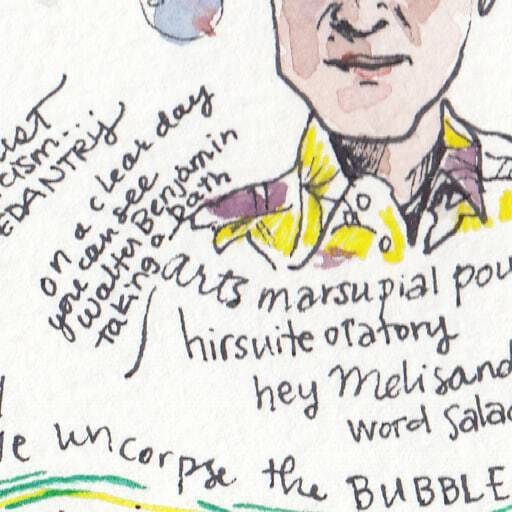 EDANTRY
on a clear day
you can see
Walter Benjamin
taking a bath
arts marsupial pou
hirsuite oratory
hey Melisand
word Salad
uncorpse the BUBBLE